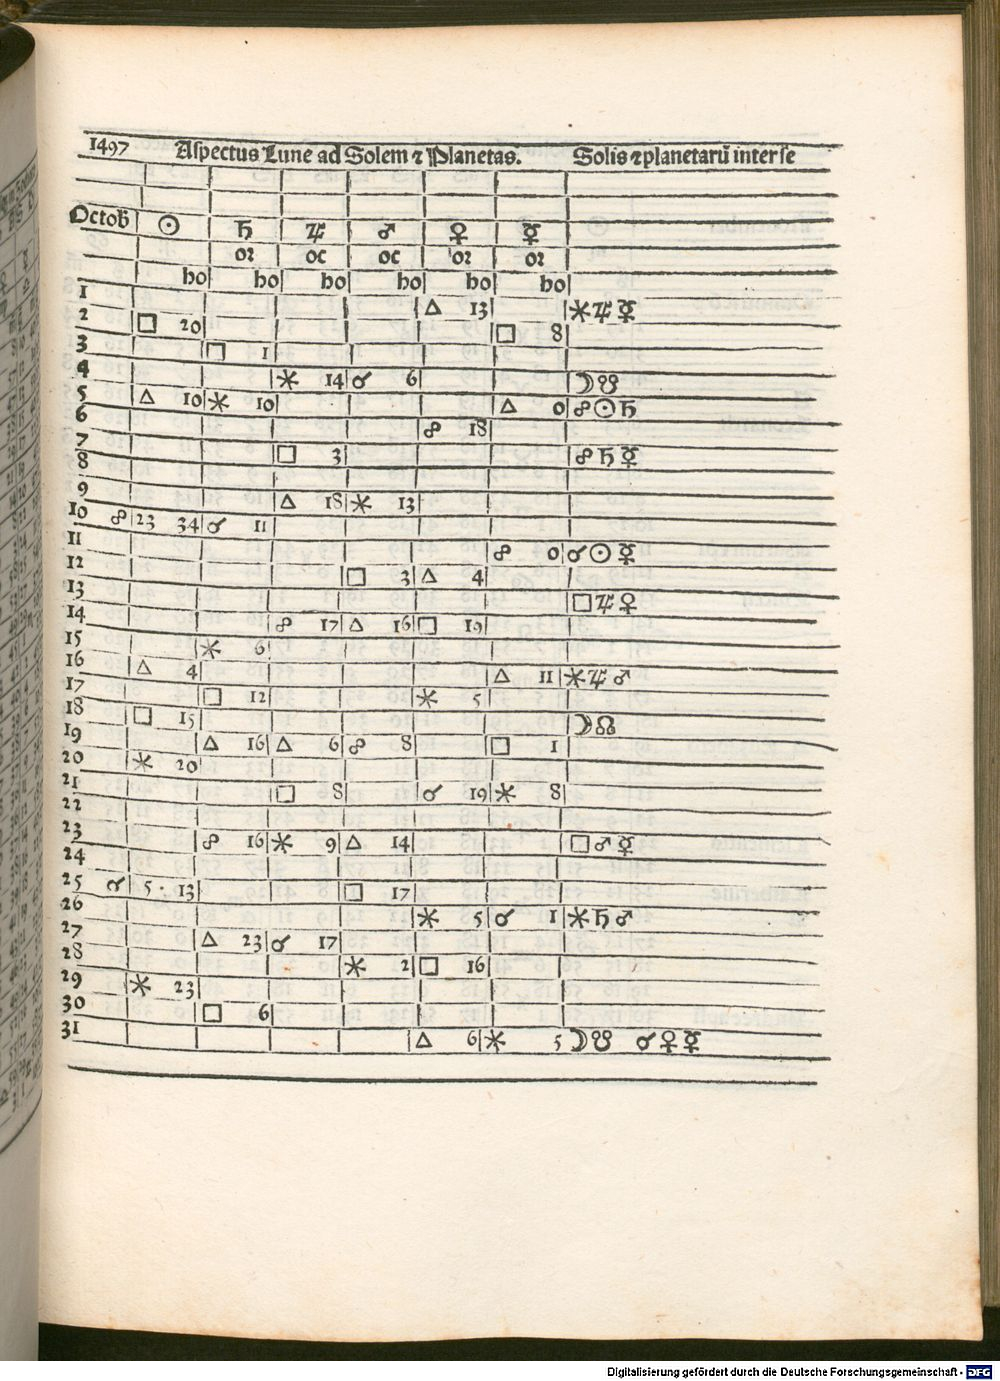 1497 Aspectus Lune ad Solem ⁊ Planetas. Solis ⁊ planetarū inter se
Octob ☉ ♄ ♃ ♂ ♀ ☿
or oc oc or or
ho ho ho ho ho ho
1 △ 13 ✶ ♃ ☿
2 □ 20 □ 8
3 □ 1
4 ✶ 14 ☌ 6 ☽ ☋
5 △ 10 ✶ 10 △ 0 ☍ ☉ ♄
6 ☍ 18
7 □ 3 ☍ ♄ ☿
8
9 △ 18 ✶ 13
10 ☍ 23 34 ☌ 11
11 ☍ 0 ☌ ☉ ☿
12 □ 3 △ 4
13 □ ♃ ♀
14 ☍ 17 △ 16 □ 19
15 ✶ 6
16 △ 4 △ 11 ✶ ♃ ♂
17 □ 12 ✶ 5
18 □ 15 ☽ ☊
19 △ 16 △ 6 ☍ 8 □ 1
20 ✶ 20
21 □ 8 ☌ 19 ✶ 8
22
23 ☍ 16 ✶ 9 △ 14 □ ♂ ☿
24
25 ☌ 5 · 13 □ 17
26 ✶ 5 ☌ 1 ✶ ♄ ♂
27 △ 23 ☌ 17
28 ✶ 2 □ 16
29 ✶ 23
30 □ 6
31 △ 6 ✶ 5 ☽ ☋ ☌ ♀ ☿
Digitalisierung gefördert durch die Deutsche Forschungsgemeinschaft - DFG